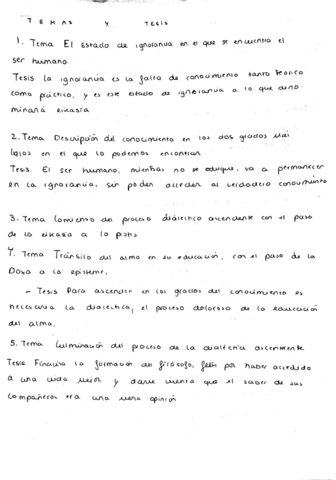 TEMAS Y TESIS
1. Tema El Estado de ignorancia en el que se encuentra el
ser humano.
Tesis la ignorancia es la falta de conocimiento tanto teorico
como práctico, y es este estado de ignorancia a lo que deno-
minará eikasia
2. Tema Descripción del conocimiento en los dos grados más
bajos en el que lo podemos encontrar
Tesis. El ser humano, mientras no se eduque, va a permanecer
en la ignorancia, sin poder acceder al verdadero conocimiento
3. Tema Comienzo del proceso dialectico ascendente con el paso
de la eikasia a la pistis
4. Tema Tránsito del alma en su educación, con el paso de la
Doxa a la episteme.
- Tesis Para ascender en los grados del conocimiento es
necesaria la dialectica, el proceso doloroso de la educación
del alma.
5. Tema Culminación del proceso de la dialectica ascendente
Tesis Finaliza la formación del filósofo, feliz por haber accedido
a una vida mejor y darse cuenta que el saber de sus
compañeros era una mera opinión